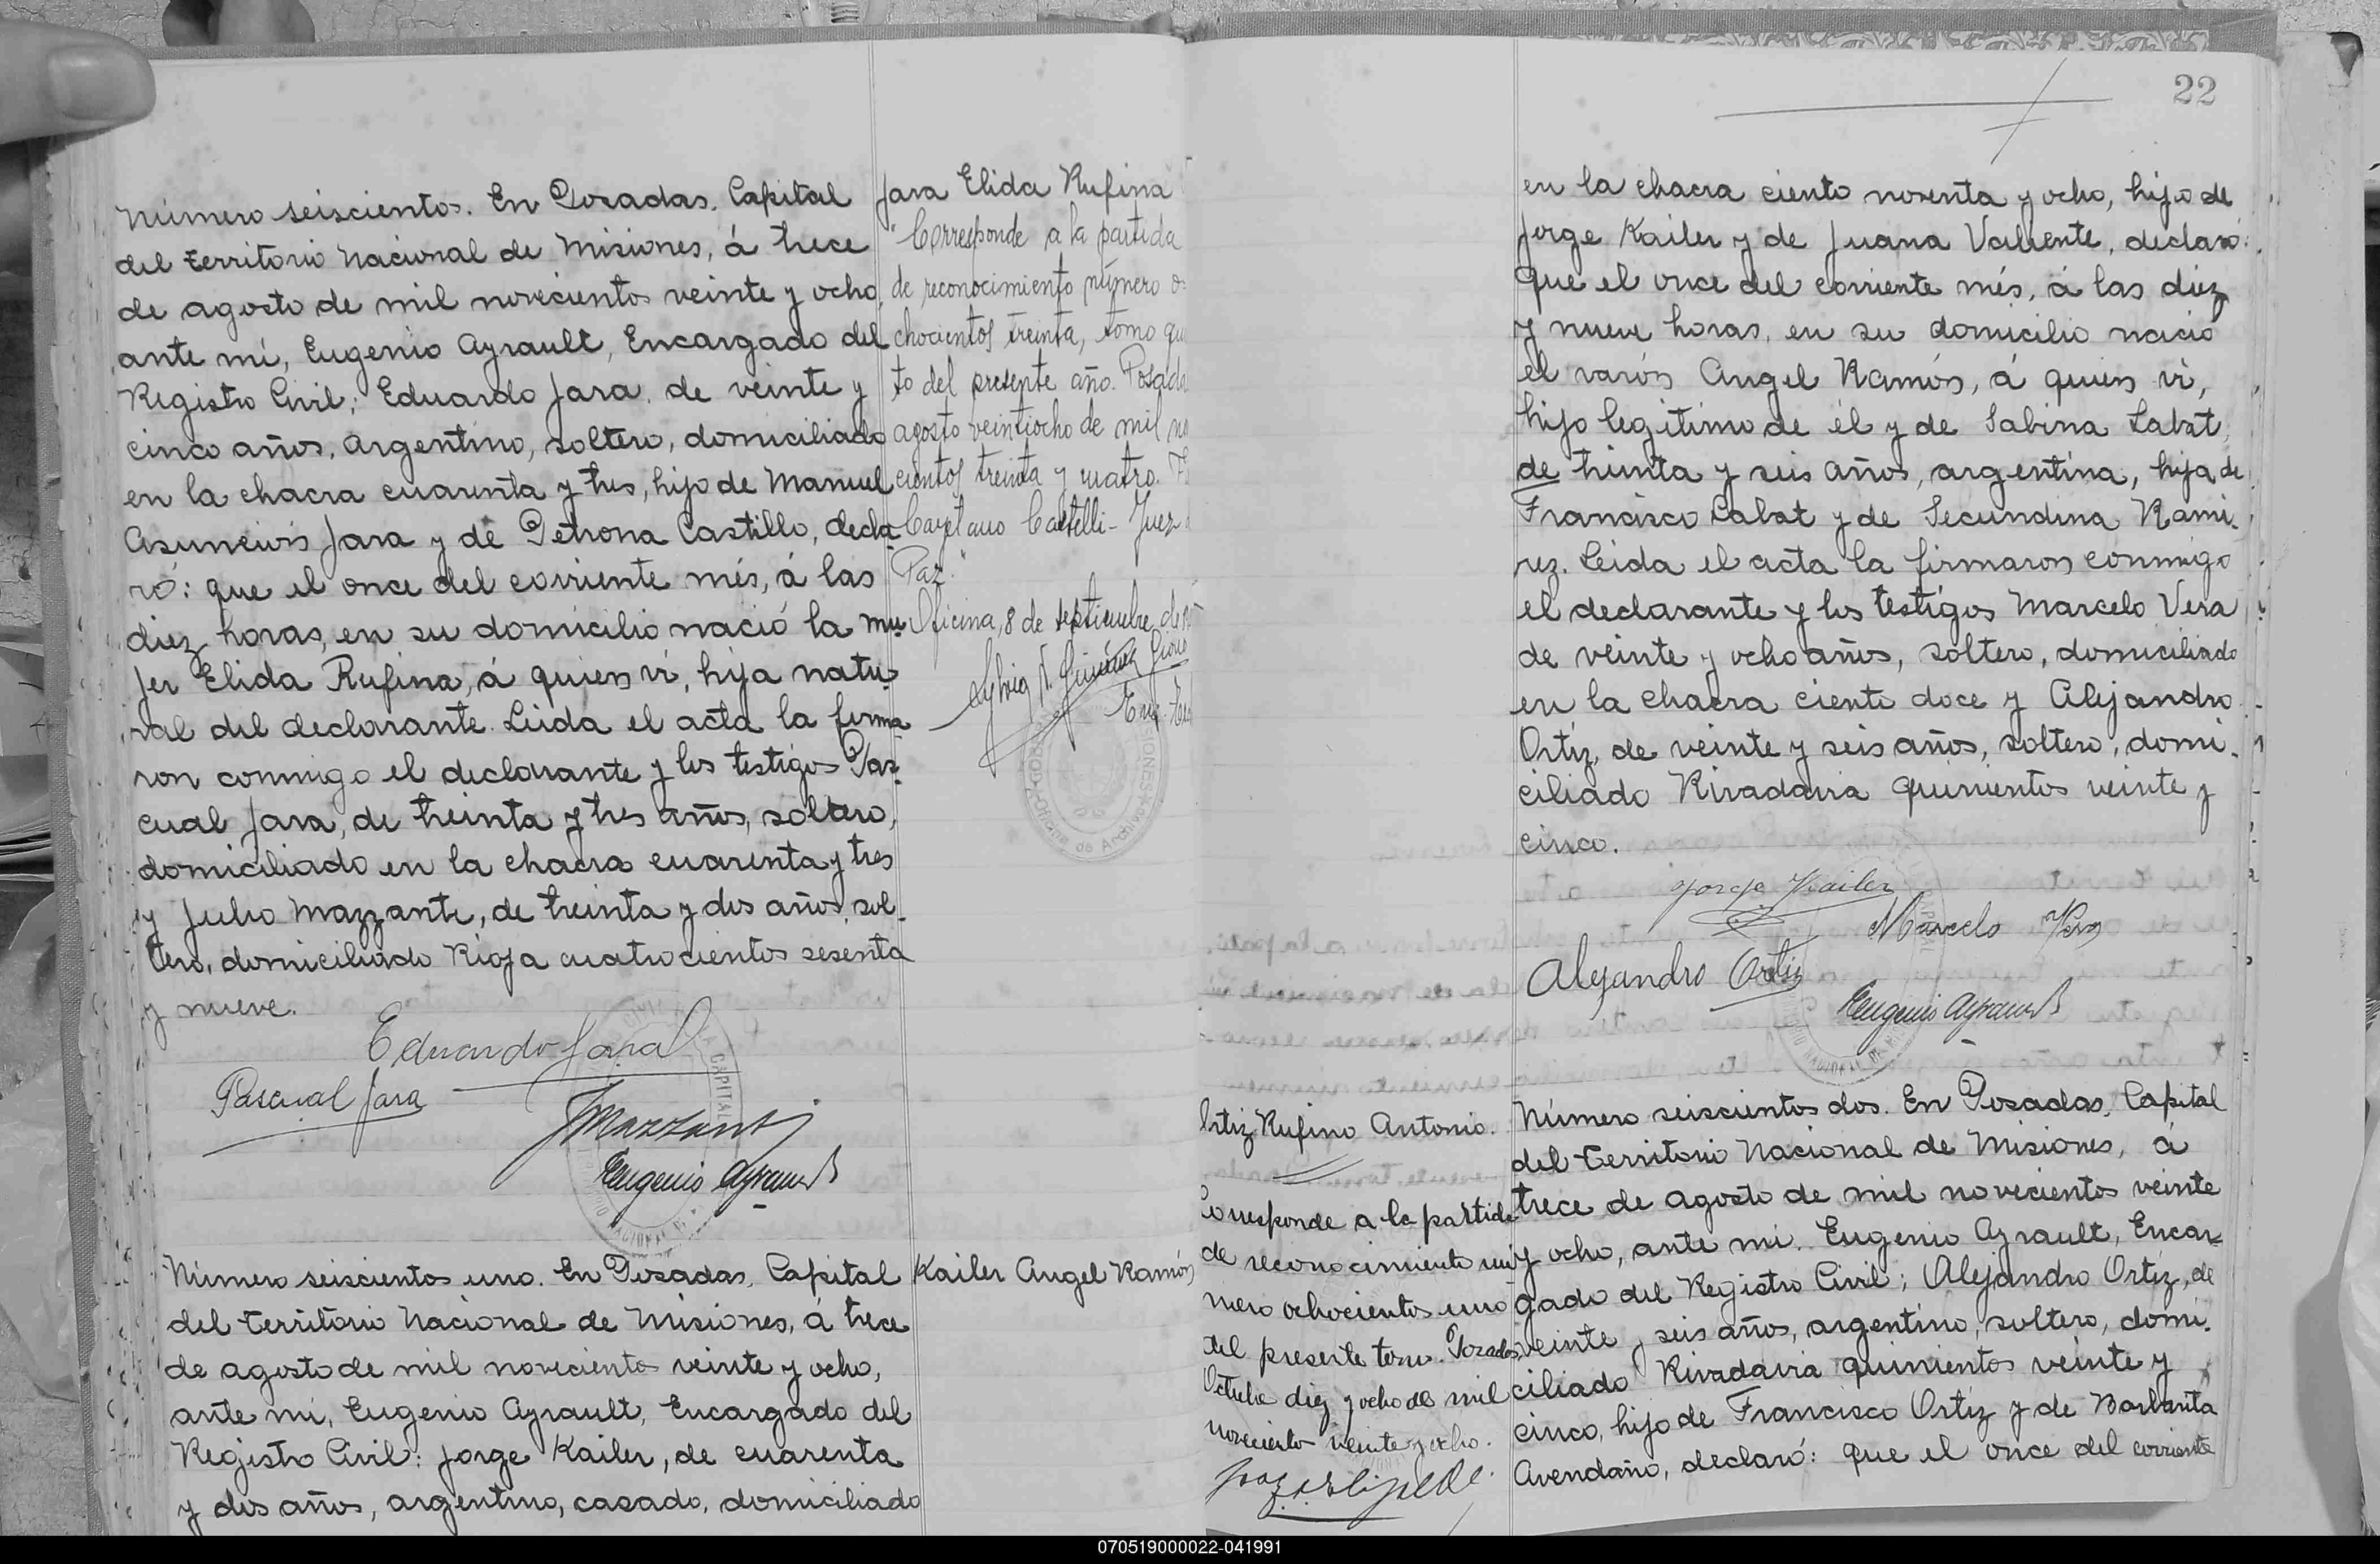 Número seiscientos. En Posadas, Capital
del Territorio Nacional de Misiones, á trece
de agosto de mil novecientos veinte y ocho,
ante mí, Eugenio Ayrault, Encargado del
Registro Civil; Eduardo Jara, de veinte y
cinco años, argentino, soltero, domiciliado
en la chacra cuarenta y tres, hijo de Manuel
Asunción Jara y de Petrona Castillo, decla-
ró: que el once del corriente més, á las
diez horas, en su domicilio nació la mu-
jer Elida Rufina, á quien ví, hija natu-
ral del declarante. Leída el acta la firma-
ron conmigo el declarante y los testigos Pas-
cual Jara, de treinta y tres años, soltero,
domiciliado en la chacra cuarenta y tres
y Julio Mazzanti, de treinta y dos años, sol-
tero, domiciliado Rioja cuatrocientos sesenta
y nueve.
Eduardo Jara
Pascual Jara
JMazzanti
Eugenio Ayrault
Jara Elida Rufina
"Corresponde a la partida
de reconocimiento número o-
chocientos treinta, tomo qu
to del presente año. Posada
agosto veintiocho de mil no
cientos treinta y cuatro.
Cayetano Castelli - Juez
Paz."
Oficina, 8 de septiembre de
Oficina de Archivo
Número seiscientos uno. En Posadas, Capital
del Territorio Nacional de Misiones, á trece
de agosto de mil novecientos veinte y ocho,
ante mí, Eugenio Ayrault, Encargado del
Registro Civil: Jorge Kailer, de cuarenta
y dos años, argentino, casado, domiciliado
Kailer Angel Ramón
22
en la chacra ciento noventa y ocho, hijo de
Jorge Kailer y de Juana Valiente, declaró:
que el once del corriente més, á las diez
y nueve horas, en su domicilio nació
el varón Angel Ramón, á quien ví,
hijo legítimo de él y de Sabina Labat,
de treinta y seis años, argentina, hija de
Francisco Labat y de Secundina Rami-
rez. Leída el acta la firmaron conmigo
el declarante y los testigos Marcelo Vera
de veinte y ocho años, soltero, domiciliado
en la chacra ciento doce y Alejandro
Ortíz, de veinte y seis años, soltero, domi-
ciliado Rivadavia quinientos veinte y
cinco.
Jorge Kailer
Marcelo Vera
Alejandro Ortiz
Eugenio Ayrault
Ortiz Rufino Antonio.
Corresponde a la partida
de reconocimiento nú-
mero ochocientos uno
del presente tomo. Posadas,
Octubre diez y ocho de mil
novecientos veinte y ocho.
Número seiscientos dos. En Posadas, Capital
del Territorio Nacional de Misiones, á
trece de agosto de mil novecientos veinte
y ocho, ante mí, Eugenio Ayrault, Encar-
gado del Registro Civil; Alejandro Ortíz, de
veinte y seis años, argentino, soltero, domi-
ciliado Rivadavia quinientos veinte y
cinco, hijo de Francisco Ortíz y de
Avendaño, declaró: que el once del corriente
070519000022-041991